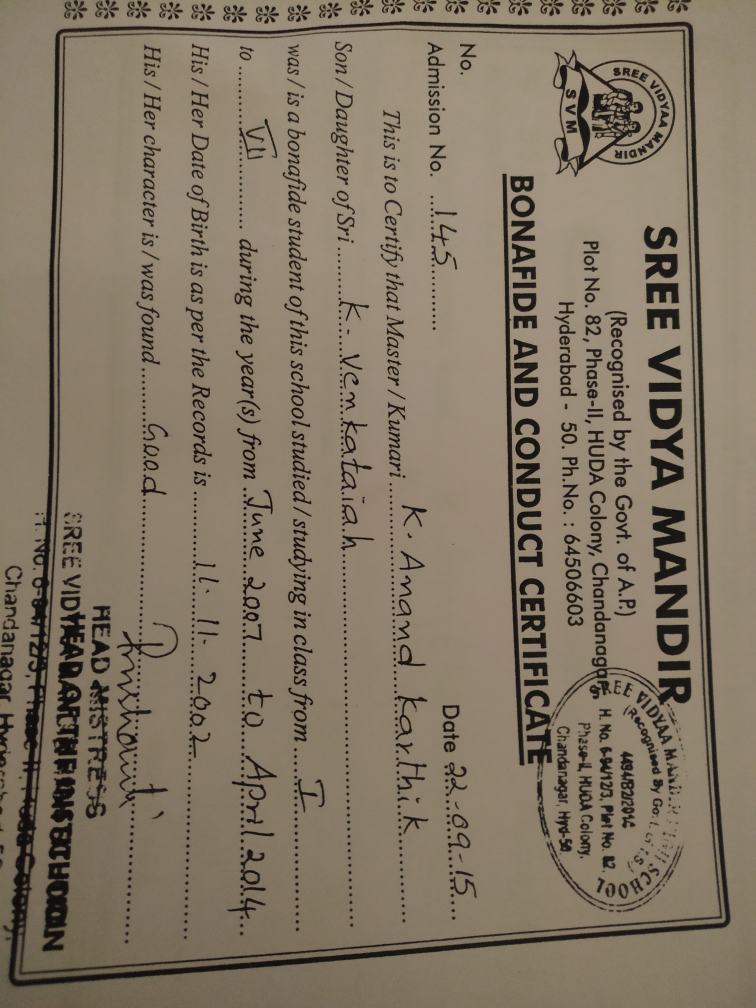 SREE VIDYA MANDIR
SREE VIDYA MANDIR
SVM
(Recognised by the Govt. of A.P.)
Plot No. 82, Phase-II, HUDA Colony, Chandanagar
Hyderabad - 50. Ph.No. : 64506603
SREE VIDYAA MANDIR HIGH SCHOOL
(Recognised By Govt. of T.S.)
4494/B2/2014
H. No. 6-94/12/3, Plot No. 82,
Phase-II, HUDA Colony,
Chandanagar, Hyd-50
BONAFIDE AND CONDUCT CERTIFICATE
No.
Admission No. 145 Date 22-09-15
This is to Certify that Master / Kumari K. Anand Karthik
Son / Daughter of Sri K. Venkataiah
was / is a bonafide student of this school studied / studying in class from I
to VII during the year(s) from June 2007 to April 2014
His / Her Date of Birth is as per the Records is 11. 11. 2002
His / Her character is / was found Good
HEAD MISTRESS
SREE VIDYAA MANDIR HIGH SCHOOL
HEAD OF THE INSTITUTION
H. No. 6-94/12/3, Phase-II, Huda Colony,
Chandanagar, Hyderabad